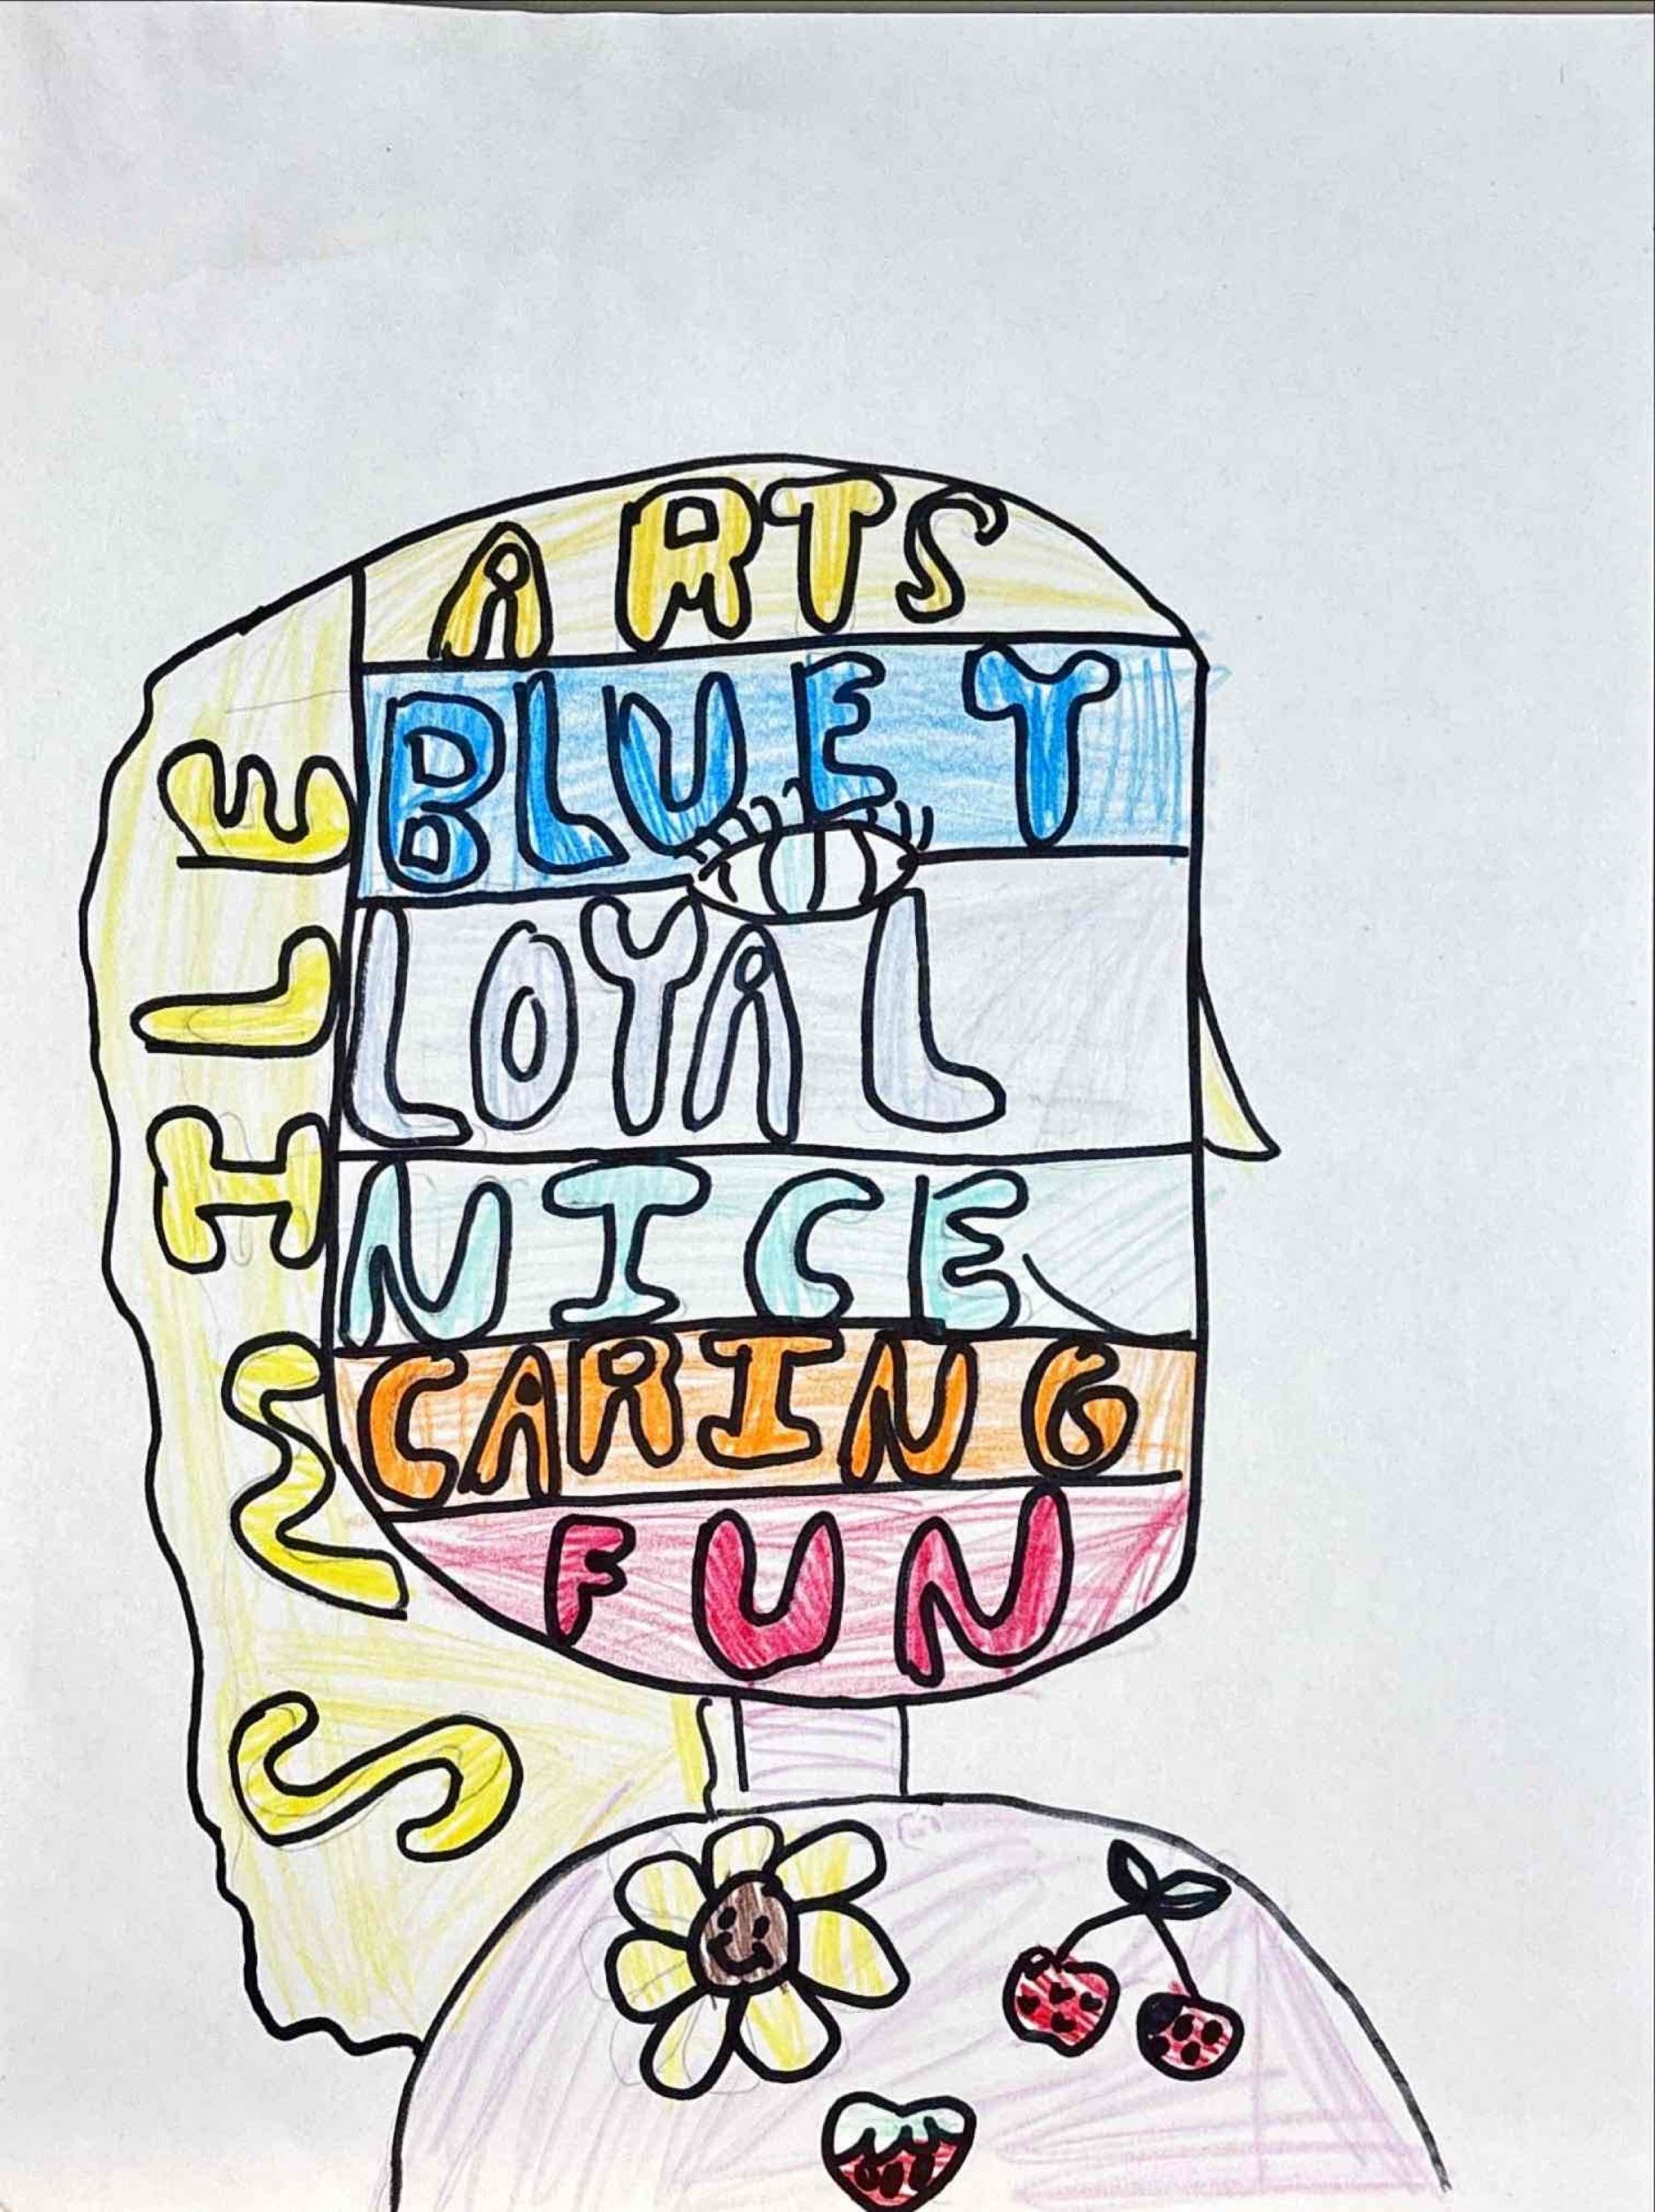 ARTS
BLUEY
LOYAL
NICE
CARING
FUN
SMILE